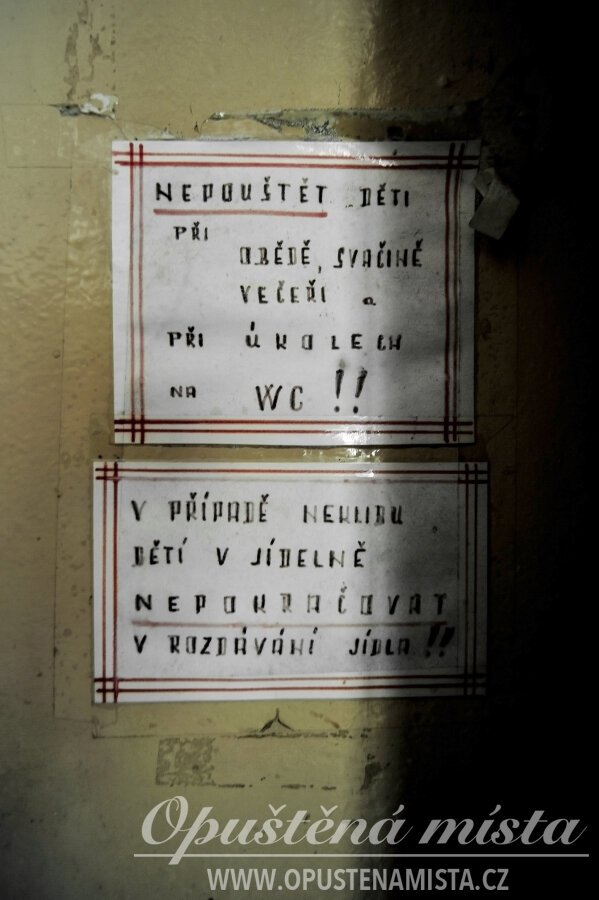 NEPOUŠTĚT DĚTI
PŘI
OBĚDĚ, SVAČINĚ
VEČEŘI a
PŘI ÚKOLECH
NA WC !!
V PŘÍPADĚ NEKLIDU
DĚTÍ V JÍDELNĚ
NEPOKRAČOVAT
V ROZDÁVÁNÍ JÍDLA!!
Opuštěná místa
WWW.OPUSTENAMISTA.CZ